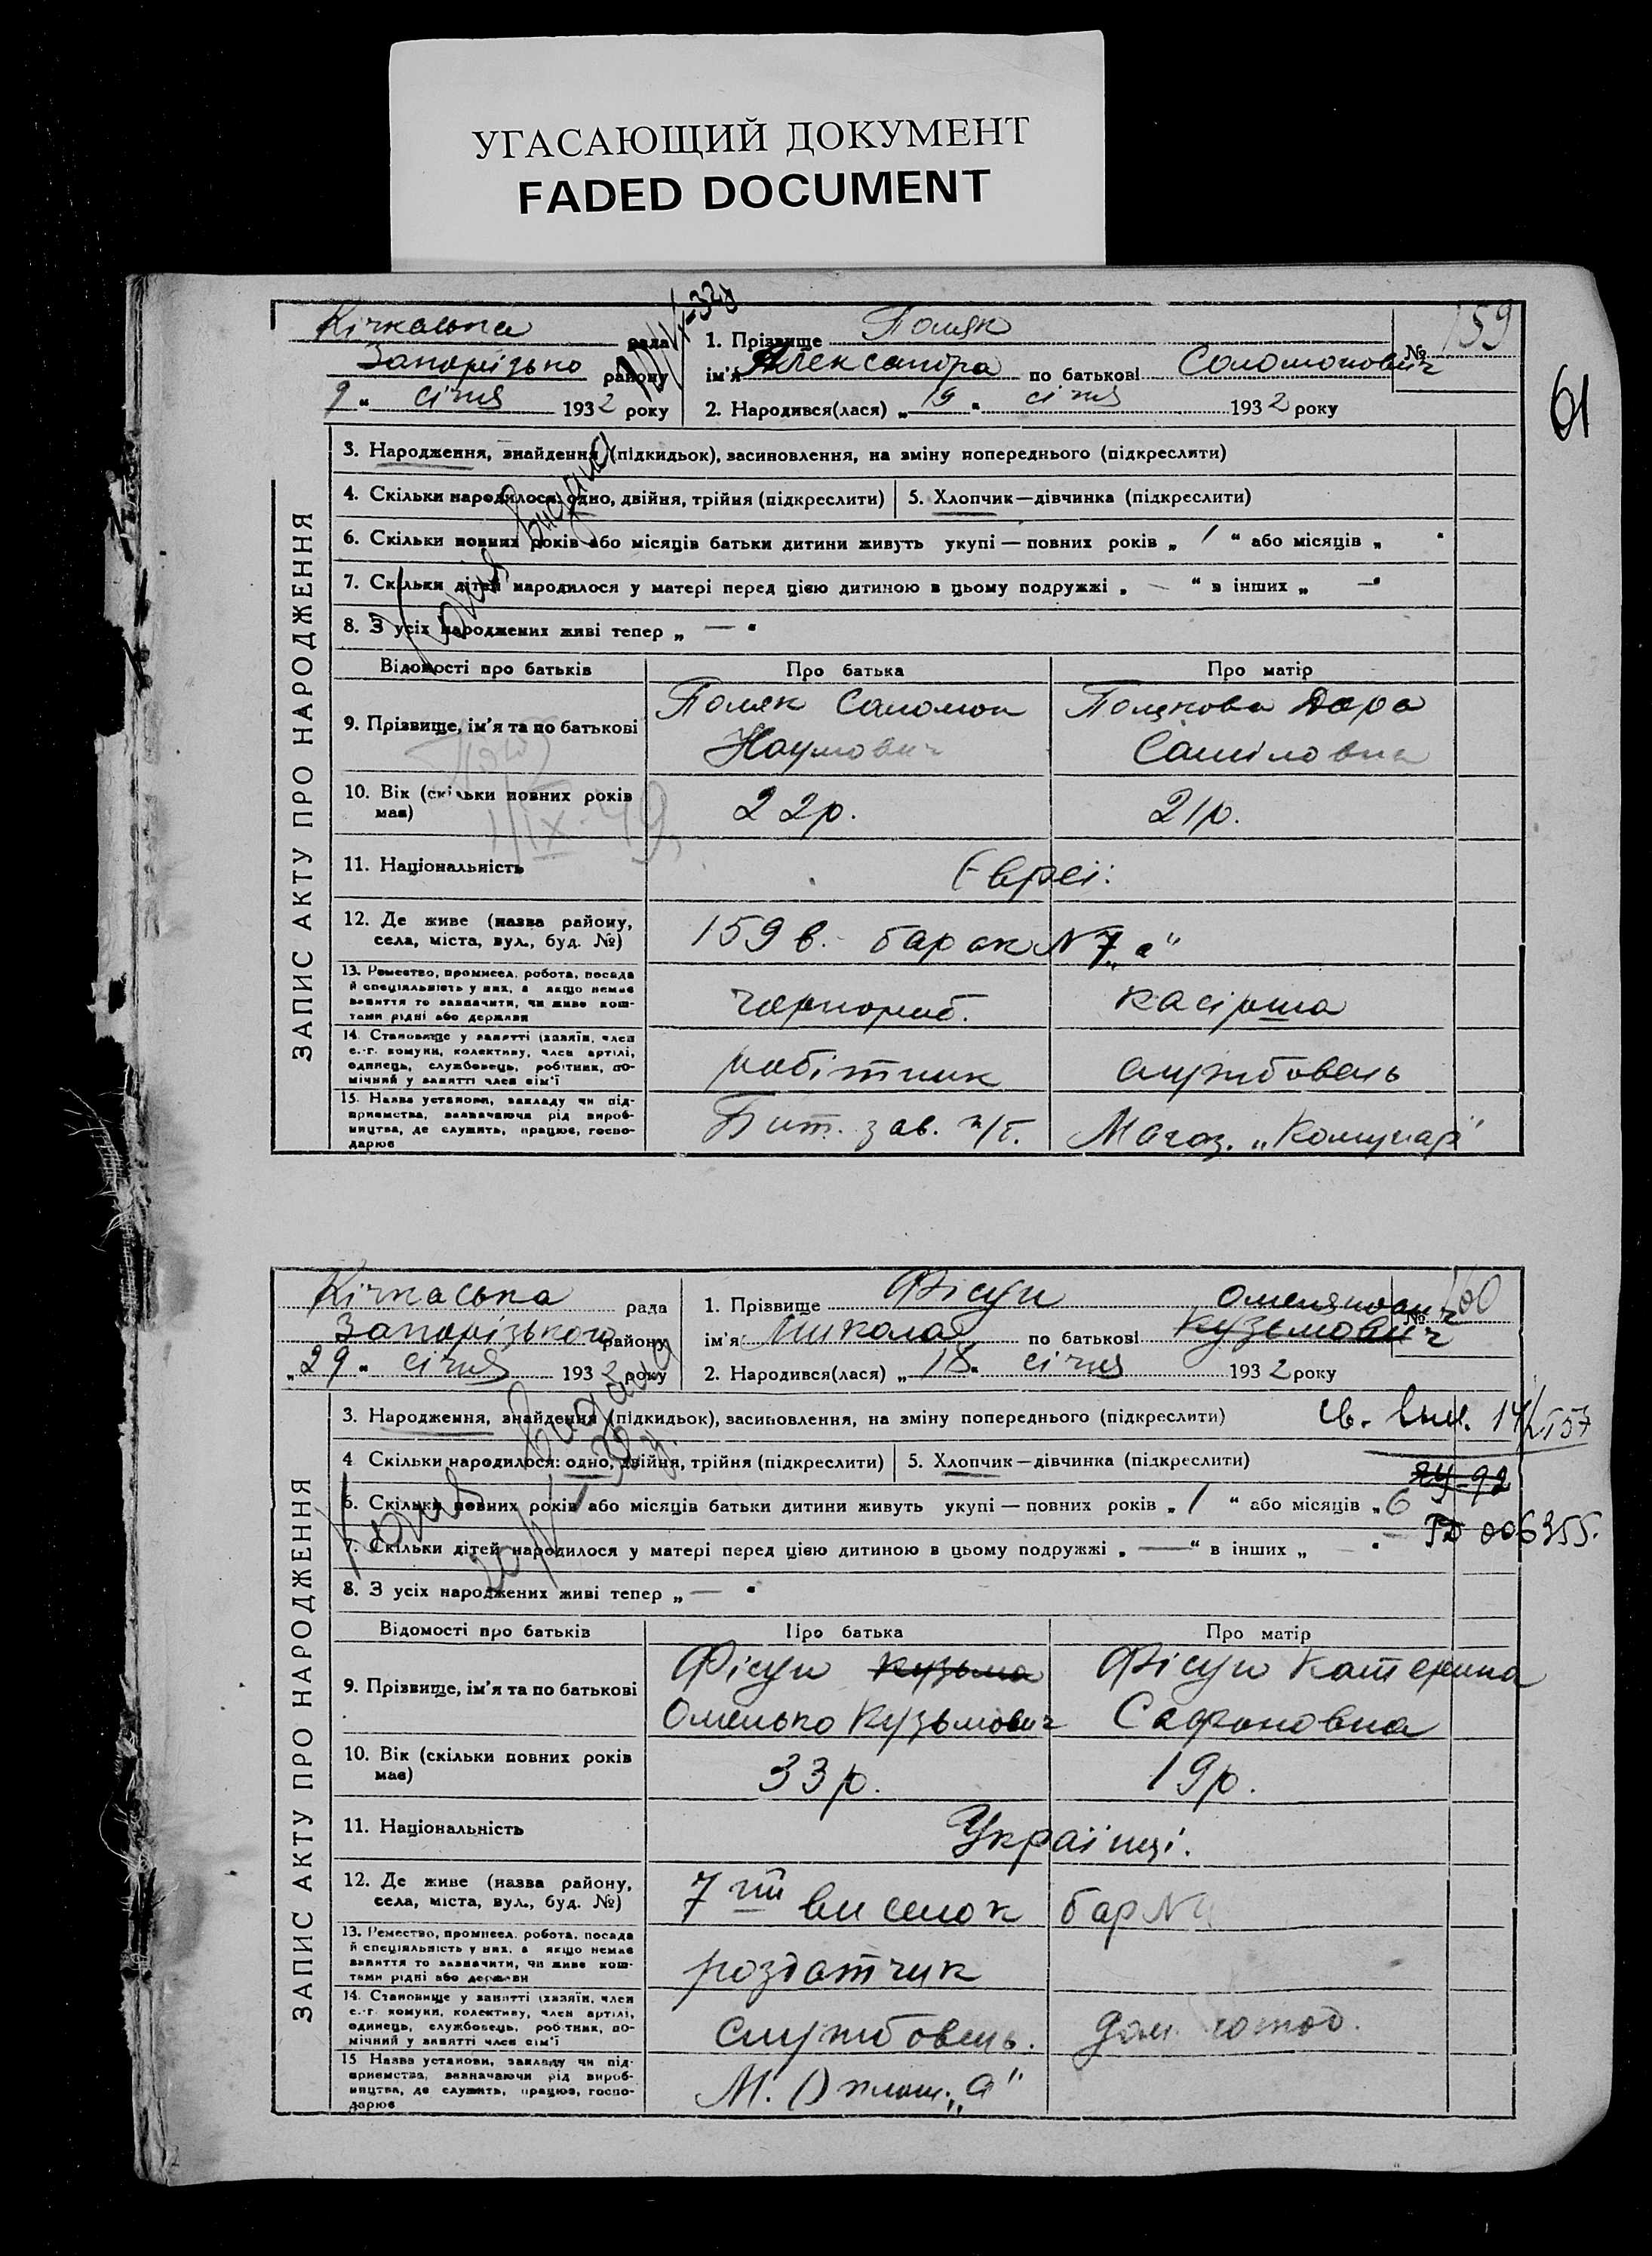 УГАСАЮЩИЙ ДОКУМЕНТ
FADED DOCUMENT
61
ЗАПИС АКТУ ПРО НАРОДЖЕННЯ
Кічкаська рада
Запорізько району
9 " січня 1932 року
Копія видана
1. Прізвище Поляк
№ 159
ім'я Александра по батькові Соломонович
2. Народився(лася) „ 19 " січня 1932 року
3. Народження, знайдення (підкидьок), засиновлення, на зміну попереднього (підкреслити)
4. Скільки народилося: одно, двійня, трійня (підкреслити) 5. Хлопчик—дівчинка (підкреслити)
6. Скільки повних років або місяців батьки дитини живуть укупі — повних років „ 1 " або місяців „ "
7. Скільки дітей народилося у матері перед цією дитиною в цьому подружжі „ — " в інших „ — "
8. З усіх народжених живі тепер „ — "
Відомості про батьків Про батька Про матір
9. Прізвище, ім'я та по батькові Поляк Соломон Наумович Полякова Дора Саміловна
10. Вік (скільки повних років має) 22р. 21р.
IX-49
11. Національність Євреї.
12. Де живе (назва району, села, міста, вул., буд. №) 159 в. барак № 7 „а"
13. Ремество, промисел, робота, посада й спеціяльність у них, а якщо немає заняття то зазначити, чи живе коштами рідні або держави чорнороб. касірша
14. Становище у занятті (хазяїн, член с.-г. комуни, колективу, член артілі, одинець, службовець, робітник, помічний у занятті член сім'ї робітник службовець
15. Назва установи, закладу чи підприємства, зазначаючи рід виробництва, де служить, працює, господарює Бит. зав. Магаз. „Комунар"
ЗАПИС АКТУ ПРО НАРОДЖЕННЯ
Кічкаська рада
Запорізького району
„ 29 " січня 1932 року
Копія видана
1. Прізвище Фісун
№ 160
Омелянович
ім'я Микола по батькові Кузьмович
2. Народився(лася) „ 18 " січня 1932 року
3. Народження, знайдення (підкидьок), засиновлення, на зміну попереднього (підкреслити)
4 Скільки народилося: одно, двійня, трійня (підкреслити) 5. Хлопчик—дівчинка (підкреслити)
6. Скільки повних років або місяців батьки дитини живуть укупі — повних років „ 1 " або місяців „ 6
006355.
7. Скільки дітей народилося у матері перед цією дитиною в цьому подружжі „ — " в інших „ — "
8. З усіх народжених живі тепер „ — "
Відомості про батьків Про батька Про матір
9. Прізвище, ім'я та по батькові Фісун Кузьма Омелько Кузьмович Фісун Катерина Сафоновна
10. Вік (скільки повних років має) 33р. 19р.
11. Національність Українці.
12. Де живе (назва району, села, міста, вул., буд. №) 7ий виселок бар №
13. Ремество, промисел, робота, посада й спеціяльність у них, а якщо немає заняття то зазначити, чи живе коштами рідні або держави роздатчик
14. Становище у занятті (хазяїн, член с.-г. комуни, колективу, член артілі, одинець, службовець, робітник, помічний у занятті член сім'ї службовець. дом. господ.
15 Назва установи, закладу чи підприємства, зазначаючи рід виробництва, де служить, працює, господарює М. „а"